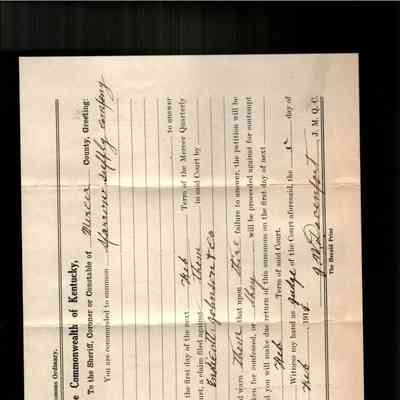 mons Ordinary.
e Commonwealth of Kentucky,
To the Sheriff, Coroner or Constable of Mercer County, Greeting:
You are commanded to summon Farmers Supply Company
to answer
the first day of the next Feb Term of the Mercer Quarterly
urt, a claim filed against them in said Court by
Johnson & Co
d warn them that upon their failure to answer, the petition will be
ken for confessed, or they will be proceeded against for contempt
d you will make due return of this summons on the first day of next
Feb Term of said Court.
Witness my hand as Judge of the Court aforesaid, the day of
Feb 191
J. M. Q. C.
The Herald Print